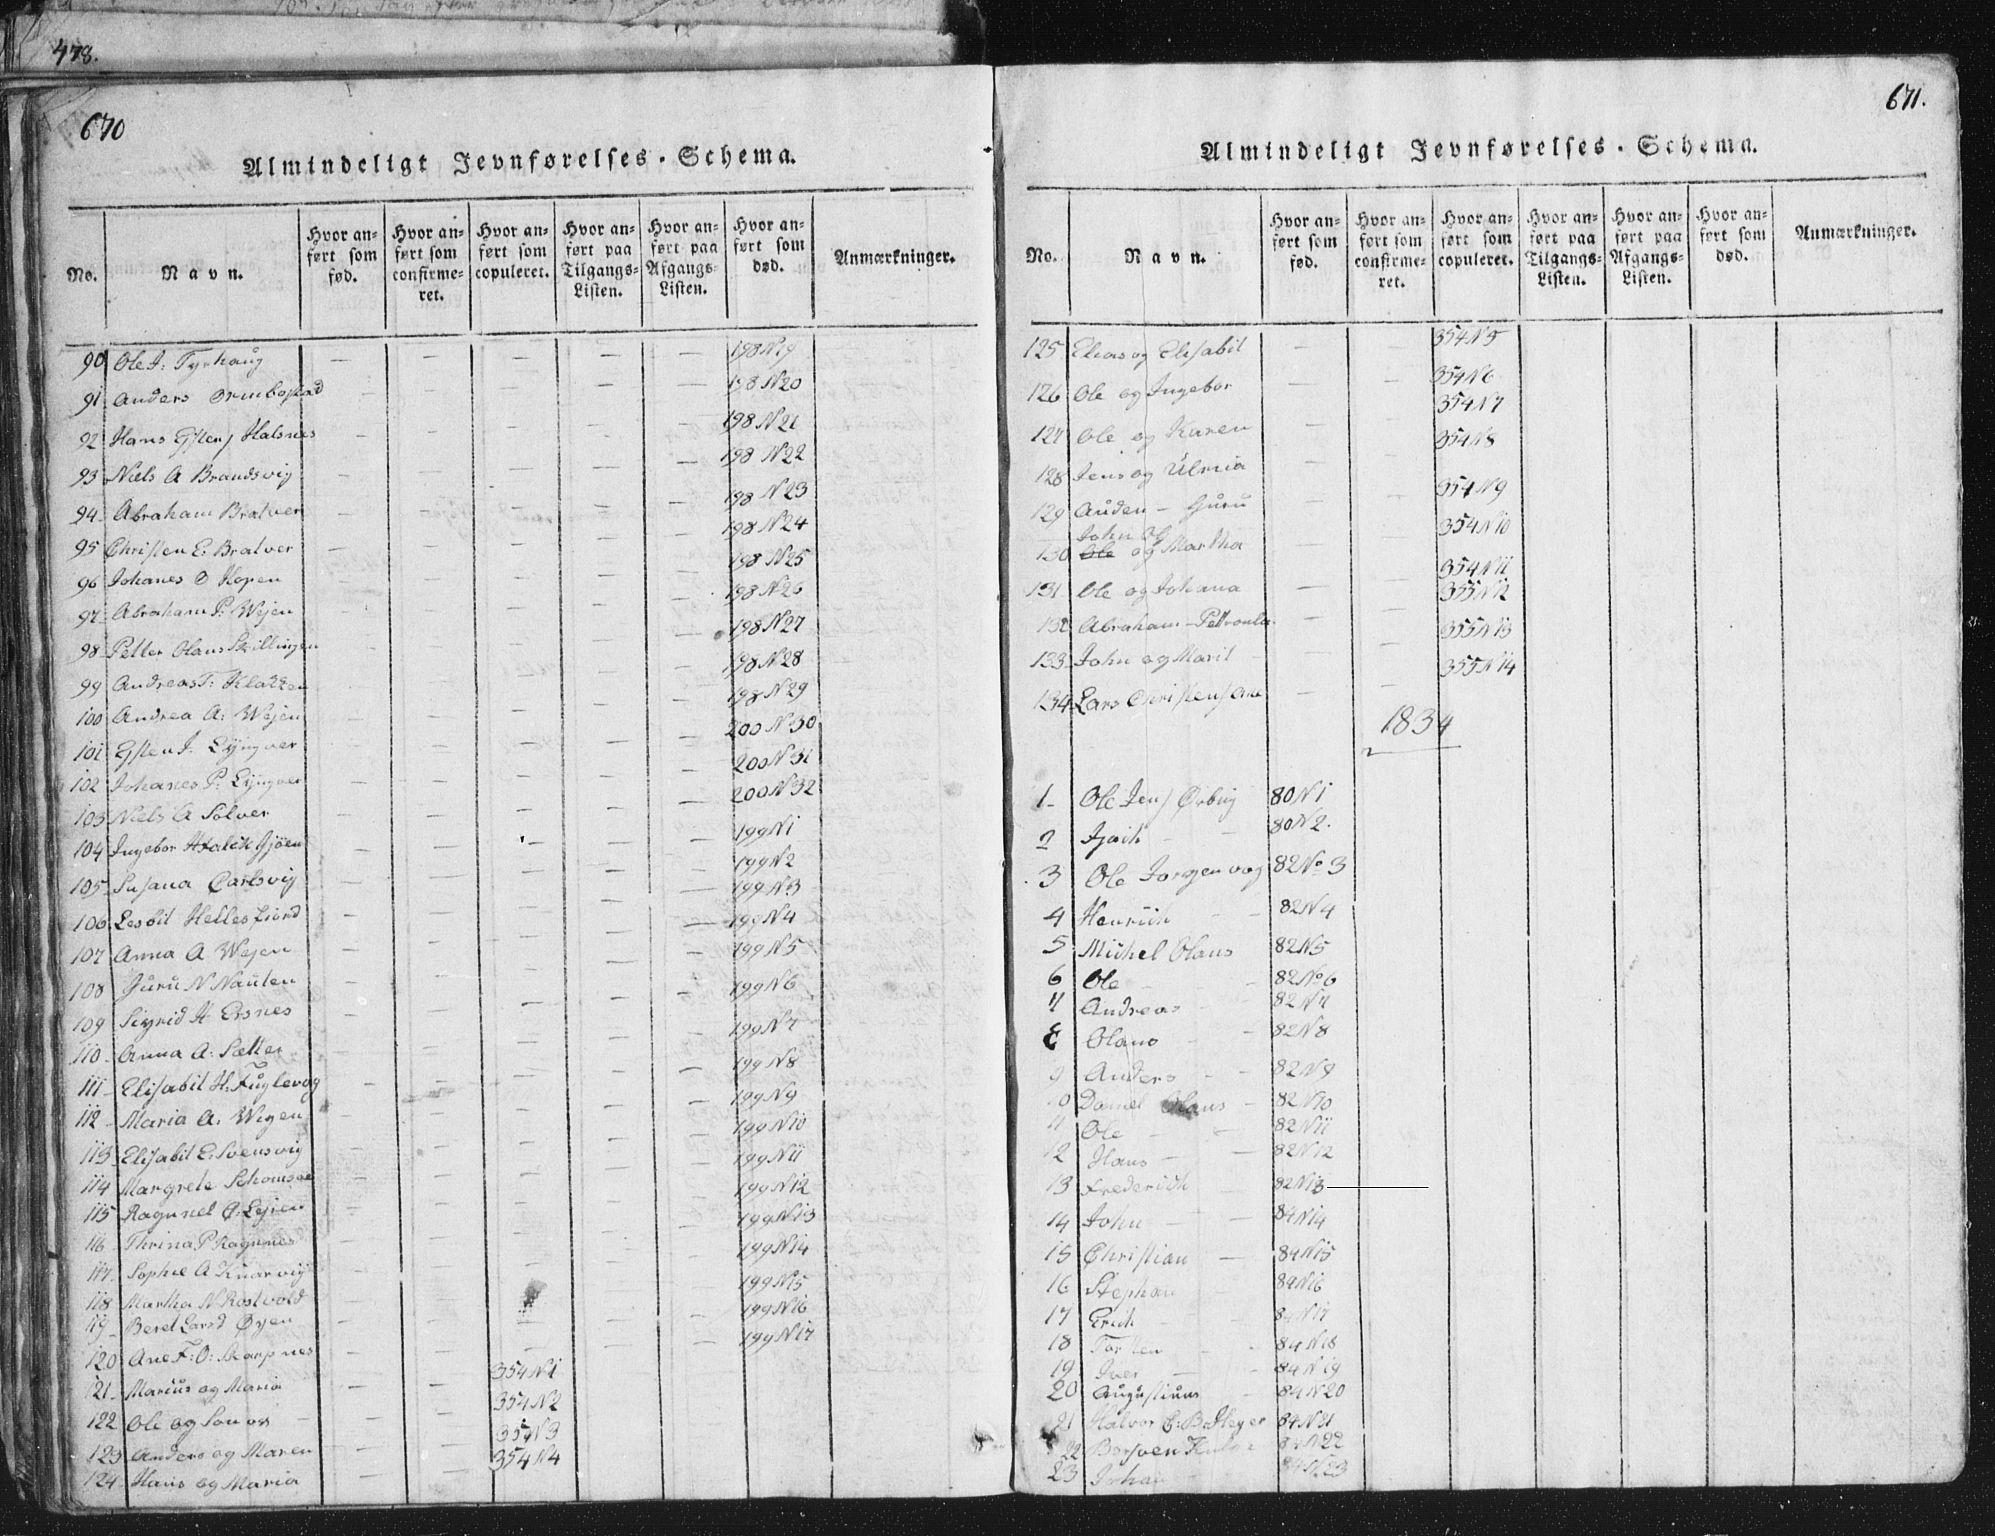 478.
670
Almindeligt Jevnførelses-Schema.
No. Navn. Hvor anført som fød. Hvor anført som confirmeret. Hvor anført som copuleret. Hvor anført paa Tilgangs-Listen. Hvor anført paa Afgangs-Listen. Hvor anført som død. Anmærkninger.
90 Ole J: Tyrhaug 198 N19
91 Anders Ormbostad 198 N20
92 Hans Halsnes 198 N21
93 Niels A Brandsvig 198 N22
94 Abraham Bratver 198 N23
95 Christen E: Bratver 198 N24
96 Johanes O Hopen 198 N25
97 Abraham P: Wejen 198 N26
98 Petter Olaus Skillingen 198 N27
99 Andreas T: Klakken 198 N28
100 Andrea A: Wejen 198 N29
101 Esten J. Lÿngver 200 N30
102 Johanes P: Lÿngver 200 N31
103 Niels A Solver 200 N32
104 Ingebor 199 N1
105 Susana Carlsvig 199 N2
106 Lesbit 199 N3
107 Anna A Wejen 199 N4
108 Guru N Nauten 199 N5
109 Sigrid H Ersnes 199 N6
110 Anna A: Sætter 199 N7
111 Elisabit H: Fuglevog 199 N8
112 Maria A: Wejen 199 N9
113 Elisabit E: Svensvig 199 N10
114 Margrete 199 N11
115 Ragnnel 199 N12
116 Thrina P Ragnnes 199 N13
117 Sophie A Knarvig 199 N14
118 Martha N Rostvold 199 N15
119 Beret Larsd Øyen 199 N16
120 Ane F: O: Skarpnes 199 N17
121 Marius og Maria 354 N1
122 Ole og 354 N2
123 Anders og Maren 354 N3
124 Hans og Maria 354 N4
671.
Almindeligt Jevnførelses-Schema.
No. Navn. Hvor anført som fød. Hvor anført som confirmeret. Hvor anført som copuleret. Hvor anført paa Tilgangs-Listen. Hvor anført paa Afgangs-Listen. Hvor anført som død. Anmærkninger.
125 Elias og Elisabit 354 N5
126 Ole og Ingebor 354 N6
127 Ole og Karen 354 N7
128 Jens og Ulrica 354 N8
129 Auden - Guru 354 N9
John Ol
130 Ole og Martha 354 N10
131 Ole og Johana 354 N11
132 Abraham - Petronla 355 N12
133 John og Marit 355 N13
134 Lars Christens Ane 355 N14
1834
1 Ole Jens Ørbug 80 N1
2 80 N2.
3 Ole Jorgenvog 82 No 3
4 Henrich 82 N4
5 Michel Olaus 82 N5
6 Ole 82 No 6
7 Andreas 82 N7
8 Olaus 82 N8
9 Anders 82 N9
10 Daniel Olaus 82 N10
11 Ole 82 N11
12 Hans 82 N12
13 Frederich 82 N13
14 John 84 N14
15 Christian 84 N15
16 Stephan 84 N16
17 Erich 84 N17
18 Torsten 84 N18
19 Iver 84 N19
20 Augustinus 84 N20
21 Halvor E: B: Heyer 84 N21
22 84 N22
23 Johan 84 N23